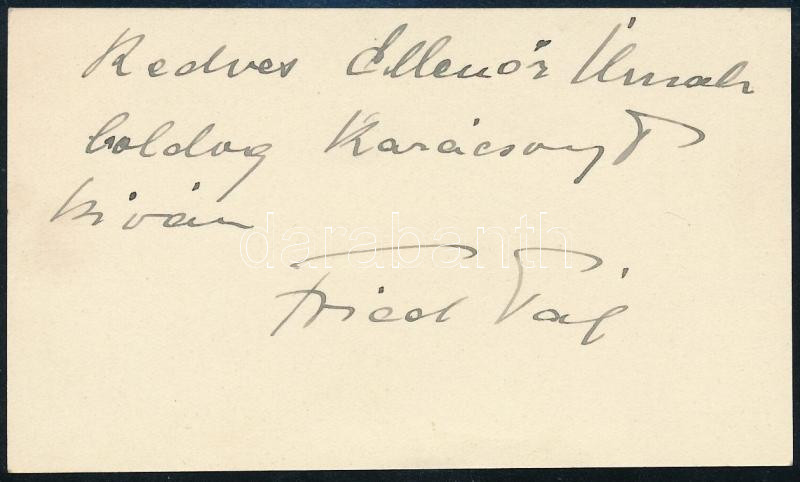 Kedves Ellenőr Úrnak
boldog Karácsonyt
kiván
Fried Pál
darabanth